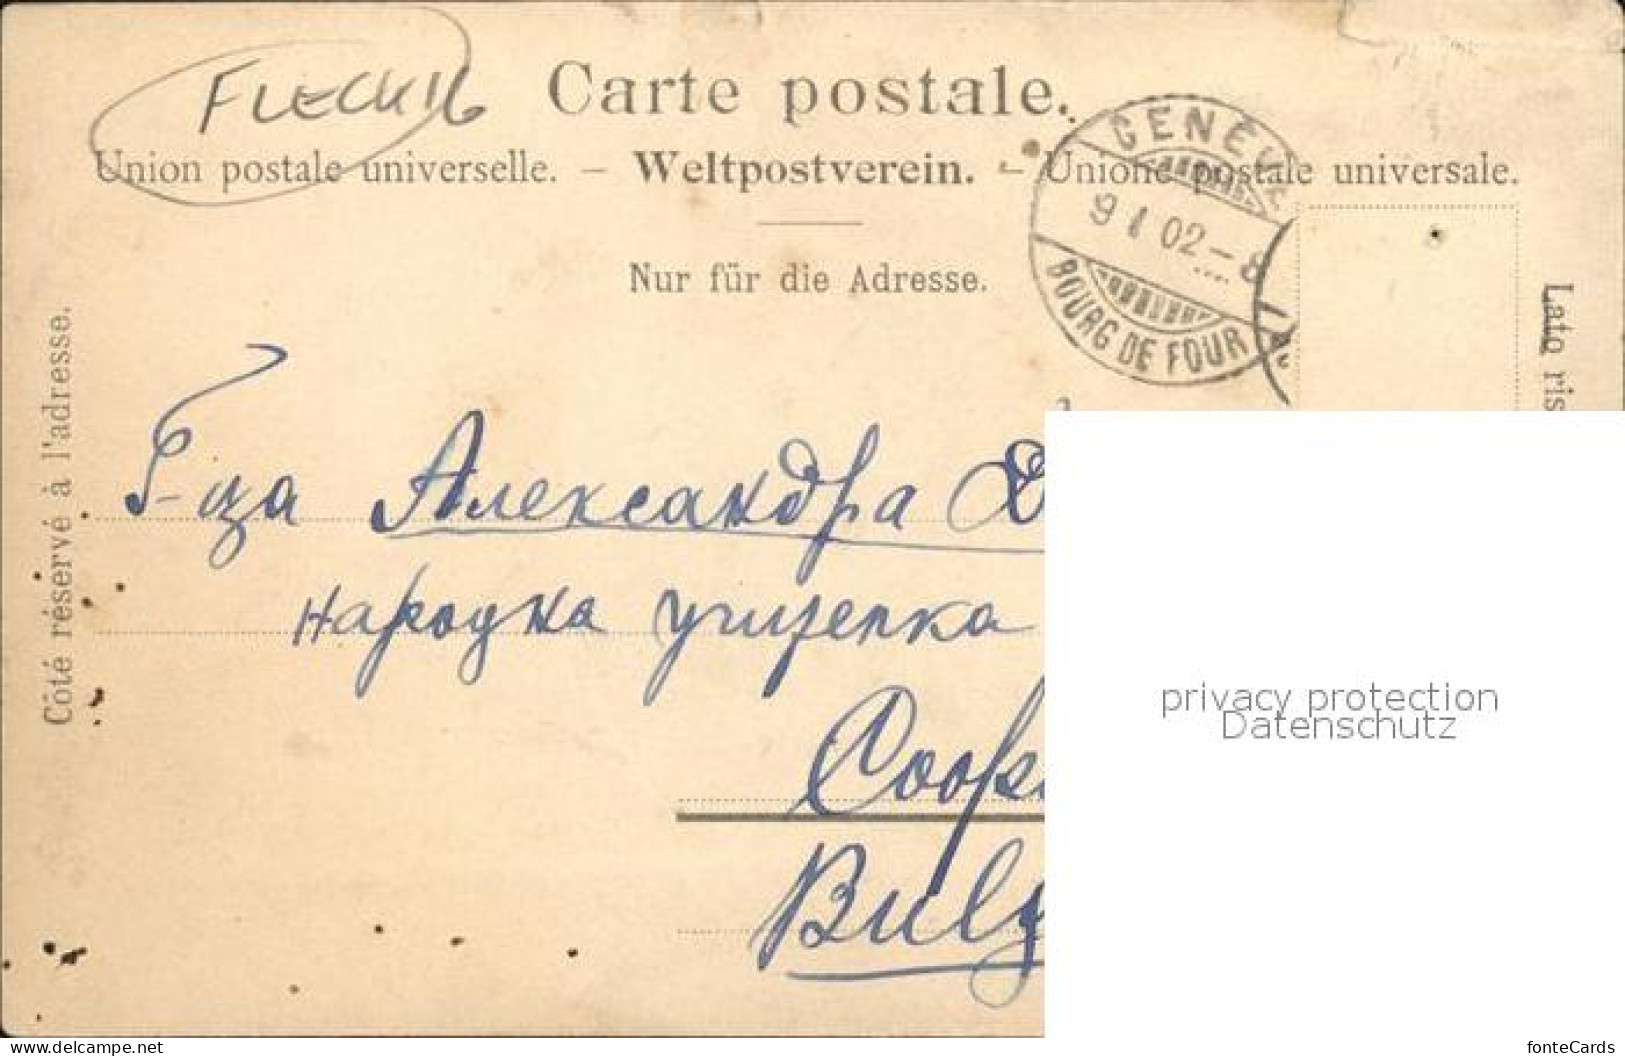 FLECKIG
Carte postale.
Union postale universelle. – Weltpostverein. – Unione postale universale.
GENÈVE
9 I 02 – 8
BOURG DE FOUR
Nur für die Adresse.
Côté réservé à l'adresse.
Lato ris
Г-ца Александра
народна учителка
Соф
Bulg
privacy protection
Datenschutz
www.ansichtskarten-center.de
fonteCards